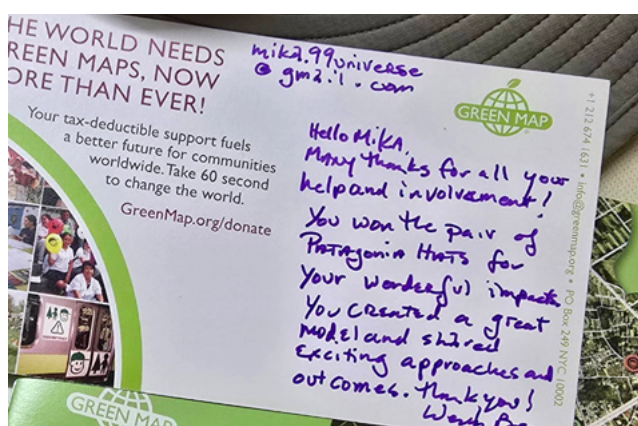 HE WORLD NEEDS
REEN MAPS, NOW
ORE THAN EVER!
Your tax-deductible support fuels
a better future for communities
worldwide. Take 60 second
to change the world.
GreenMap.org/donate
mika.99universe
@gmail.com
GREEN MAP
Hello MiKA,
MANY thanks for all your
help and involvement!
You won the pair of
PATAGONIA HATS for
your wonderful impacts
You CREATED a great
MODEL and shared
Exciting approaches and
outcomes. Thank you!
+1 212 674 1631 • info@greenmap.org • PO Box 249 NYC 10002
GREEN MAP